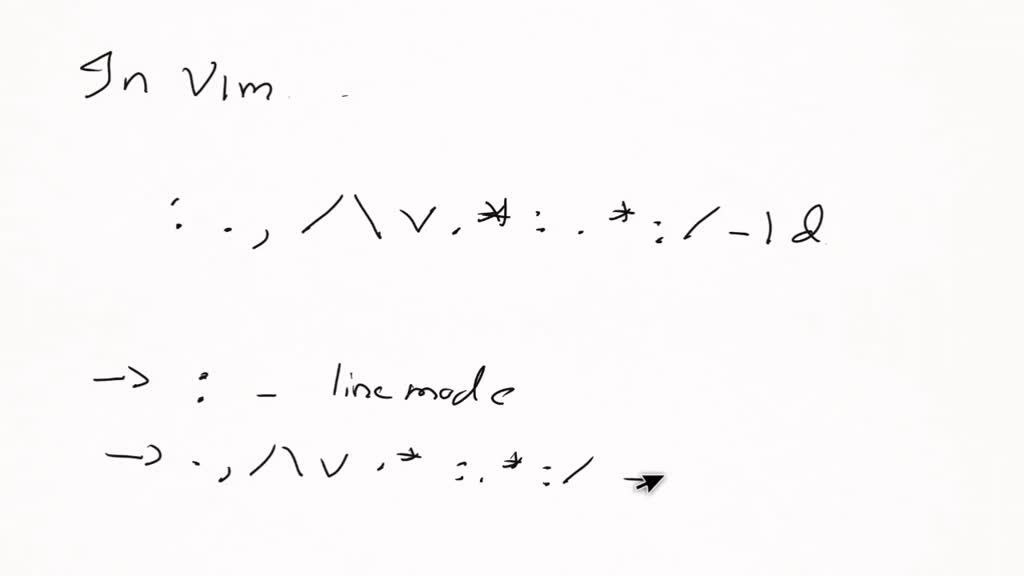 In Vim
: . , / \ v . * : . * : / - 1 d
-> : - line mode
-> . , / \ v . * : . * : / -